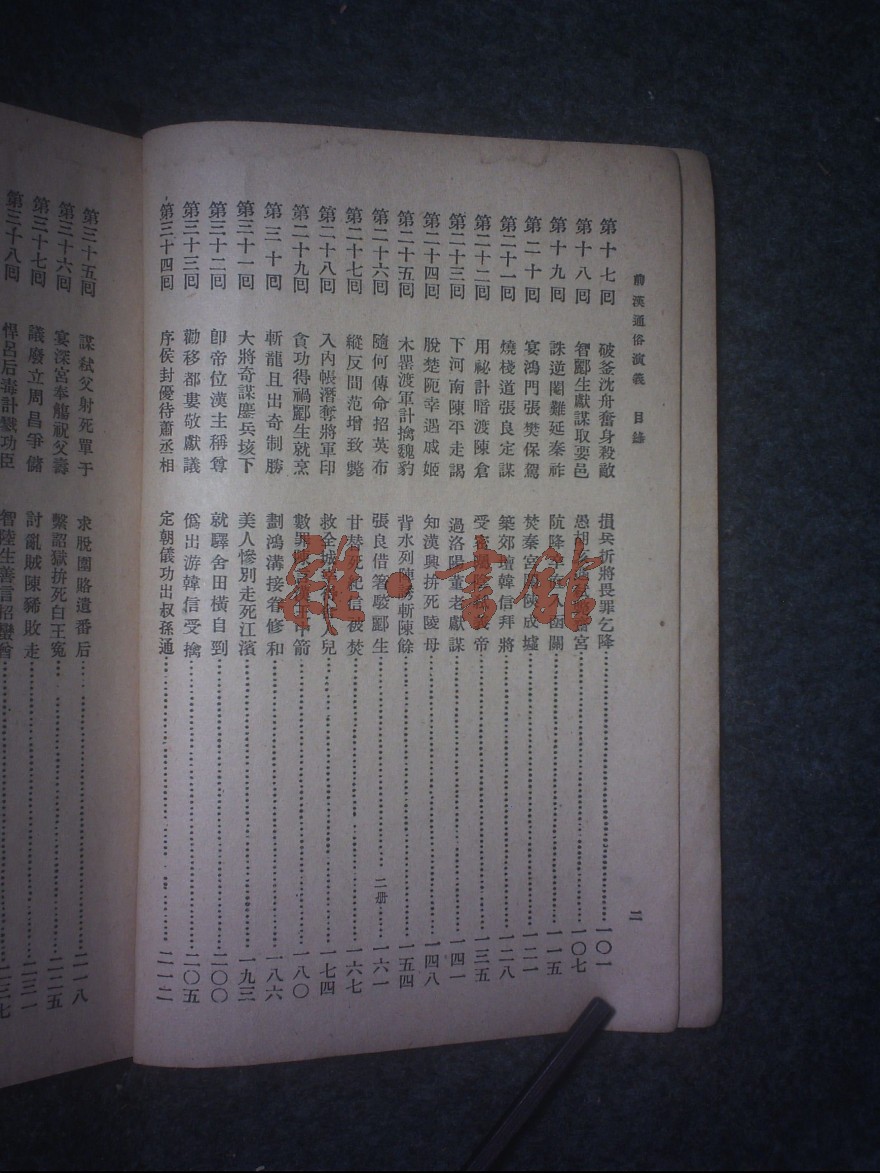 前漢通俗演義 目錄 二
第十七囘 破釜沈舟奮身殺敵 損兵折將畏罪乞降 一〇一
第十八囘 智酈生獻謀取要邑 愚胡亥 宮 一〇七
第十九囘 誅逆閹難延秦祚 阬降卒 函關 一一五
第二十囘 宴鴻門張樊保駕 焚秦宮 陵成墟 一二一
第二十一囘 燒棧道張良定謀 築郊壇韓信拜將 一二八
第二十二囘 用祕計暗渡陳倉 受 帝 一三五
第二十三囘 下河南陳平走謁 過洛陽董老獻謀 一四一
第二十四囘 脫楚阨幸遇戚姬 知漢興拚死陵母 一四八
第二十五囘 木罌渡軍計擒魏豹 背水列陳 斬陳餘 一五四
第二十六囘 隨何傳命招英布 張良借箸駁酈生 二册 一六一
第二十七囘 縱反間范增致斃 甘替死紀信被焚 一六七
第二十八囘 入內帳潛奪將軍印 救全城 兒 一七四
第二十九囘 貪功得禍酈生就烹 數罪陳 中箭 一八〇
第三十囘 斬龍且出奇制勝 劃鴻溝接眷修和 一八六
第三十一囘 大將奇謀鏖兵垓下 美人慘別走死江濱 一九三
第三十二囘 卽帝位漢主稱尊 就驛舍田橫自剄 二〇〇
第三十三囘 勸移都婁敬獻議 僞出游韓信受擒 二〇五
第三十四囘 序侯封優待蕭丞相 定朝儀功出叔孫通 二一二
第三十五囘 謀弒父射死單于 求脫圍賂遺番后 二一八
第三十六囘 宴深宮奉觴祝父壽 繫詔獄拚死白王冤 二二五
第三十七囘 議廢立周昌爭儲 討亂賊陳豨敗走 二三一
第三十八囘 悍呂后毒計戮功臣 智陸生善言招蠻酋 二三七
雜·書館